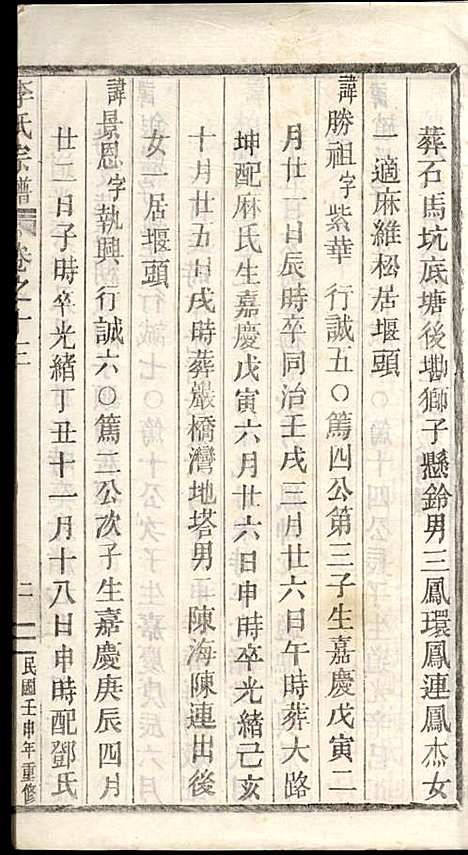 葬石馬坑底塘後墈獅子懸鈴男三鳳環鳳連鳳杰女
一適麻維松居堰頭
諱勝祖字紫華行誠五〇篤四公第三子生嘉慶戊寅二
月廿一日辰時卒同治壬戌三月廿六日午時葬大路
坤配麻氏生嘉慶戊寅六月廿六日申時卒光緒己亥
十月廿五日戌時葬嚴橋灣地塔男二陳海陳連出後
女一居堰頭
諱景恩字執興行誠六〇篤二公次子生嘉慶庚辰四月
廿二日子時卒光緒丁丑十一月十八日申時配鄧氏
李氏宗譜 卷之十三 二 民國壬申年重修